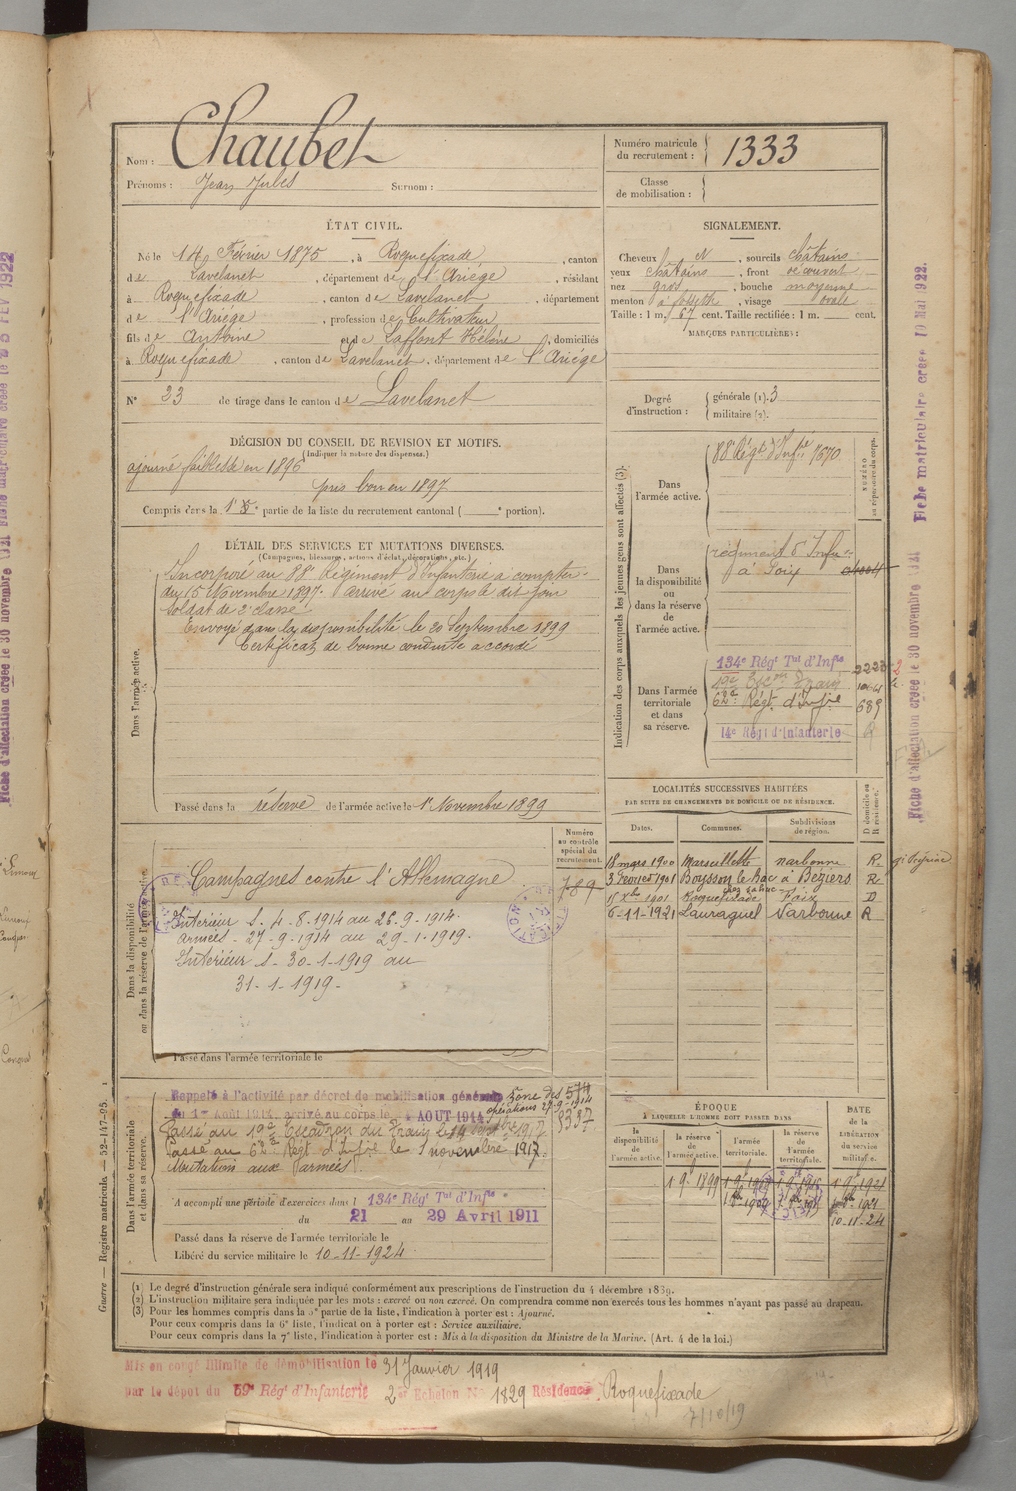 Nom : Chaubet
Prénoms : Jean Jules Surnom :
Numéro matricule du recrutement : 1333
Classe de mobilisation :
ÉTAT CIVIL.
Né le 14 Février 1875, à Roquefixade, canton
de Lavelanet, département de l'Ariège, résidant
à Roquefixade, canton de Lavelanet, département
de l'Ariège, profession de Cultivateur
fils de Antoine et de Laffont Hélène, domiciliés
à Roquefixade, canton de Lavelanet, département de l'Ariége
N° 23 de tirage dans le canton de Lavelanet
SIGNALEMENT.
Cheveux N, sourcils châtains
yeux châtains, front découvert
nez gros, bouche moyenne
menton à fossette, visage ovale
Taille : 1 m. 67 cent. Taille rectifiée : 1 m. cent.
MARQUES PARTICULIÈRES :
Degré d'instruction : générale (1). 3
militaire (2).
DÉCISION DU CONSEIL DE REVISION ET MOTIFS.
(Indiquer la nature des dispenses.)
ajourné faiblesse en 1896
pris bon en 1897
Compris dans la partie de la liste du recrutement cantonal ( portion).
DÉTAIL DES SERVICES ET MUTATIONS DIVERSES.
(Campagnes, blessures, actions d'éclat, décorations, etc.)
Dans l'armée active.
Incorporé au 88e Régiment d'Infanterie à compter
du 15 Novembre 1897. arrivé au corps le dit jour
soldat de 2e classe
Envoyé dans la disponibilité le 20 Septembre 1899
Certificat de bonne conduite accordé
Passé dans la réserve de l'armée active le 1er Novembre 1899
Indication des corps auxquels les jeunes gens sont affectés (3).
NUMÉRO au répertoire du corps.
Dans l'armée active.
88e Régt d'Infie 7670
Dans la disponibilité ou dans la réserve de l'armée active.
régiment d'Infie
à Foix
Dans l'armée territoriale et dans sa réserve.
134e Régt Tal d'Infie 2223
19e Escon Train
62e Régt d'Infie 689
14e Régt d'Infanterie
LOCALITÉS SUCCESSIVES HABITÉES
PAR SUITE DE CHANGEMENTS DE DOMICILE OU DE RÉSIDENCE.
Dates. Communes. Subdivisions de région. D. domicile ou R. résidence.
18 mars 1900 Marseillette Narbonne R.
3 Février 1901 Béziers R
15 Xbre 1901 Roquefixade Foix D
6-11-1921 Lauraguel Narbonne R
Numéro au contrôle spécial du recrutement.
789
Dans la disponibilité ou dans la réserve de l'armée active.
Campagnes contre l'Allemagne
Intérieur S. 4-8-1914 au 26-9-1914.
Armées - 27-9-1914 au 29-1-1919.
Intérieur S. 30-1-1919 au
31-1-1919.
Passé dans l'armée territoriale le
Dans l'armée territoriale et dans sa réserve.
Rappelé à l'activité par décret de mobilisation générale
du 1er Août 1914, arrivé au corps le 4 AOUT 1914
zone des opérations 27-9-1914
574
Passé au 19e Escadron du Train le 1917
Passé au 62e Régt d'Infie le 1er novembre 1917.
(Mutation aux armées)
A accompli une période d'exercices dans l 134e Régt Tal d'Infie
du 21 au 29 Avril 1911
Passé dans la réserve de l'armée territoriale le
Libéré du service militaire le 10-11-1924
ÉPOQUE
A LAQUELLE L'HOMME DOIT PASSER DANS
la disponibilité de l'armée active. la réserve de l'armée active. l'armée territoriale. la réserve de l'armée territoriale.
DATE DE LA LIBÉRATION du service militaire.
1 9bre 1899
10-11-24
(1) Le degré d'instruction générale sera indiqué conformément aux prescriptions de l'instruction du 4 décembre 1889.
(2) L'instruction militaire sera indiquée par les mots : exercé ou non exercé. On comprendra comme non exercés tous les hommes n'ayant pas passé au drapeau.
(3) Pour les hommes compris dans la 5e partie de la liste, l'indication à porter est : Ajourné.
Pour ceux compris dans la 6e liste, l'indication à porter est : Service auxiliaire.
Pour ceux compris dans la 7e liste, l'indication à porter est : Mis à la disposition du Ministre de la Marine. (Art. 4 de la loi.)
Mis en congé illimité de démobilisation le 31 Janvier 1919
par le dépôt du 59e Régt d'Infanterie 2e Echelon N° 1829 Résidence Roquefixade
7/10/19
Guerre — Registre matricule. — 52-147-95.
Fiche d'affectation créée le 30 novembre 1921 Fiche matriculaire créée 10 Mai 1922.